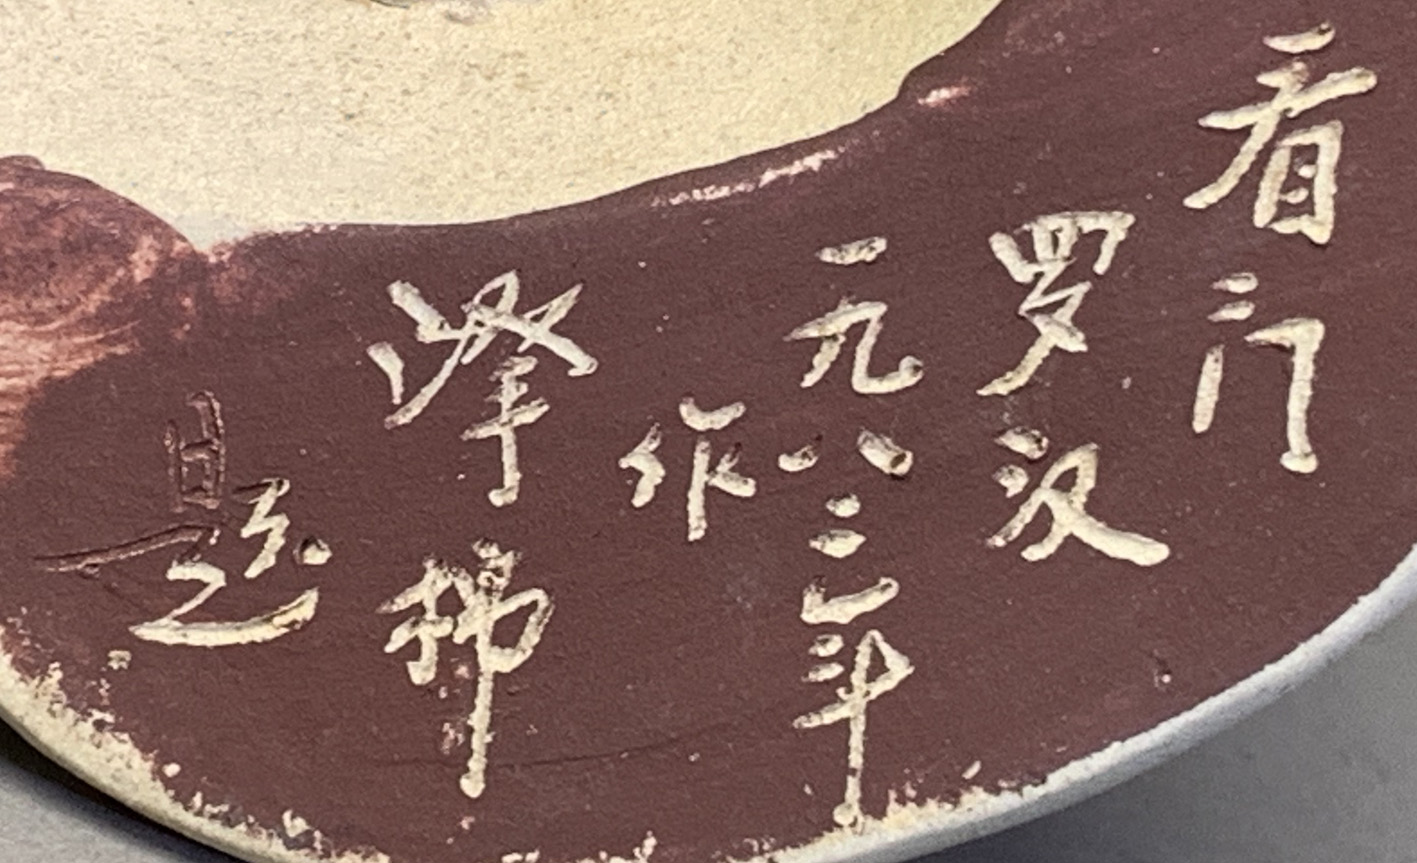 看门
罗汉
一九八二年
作
峰
题